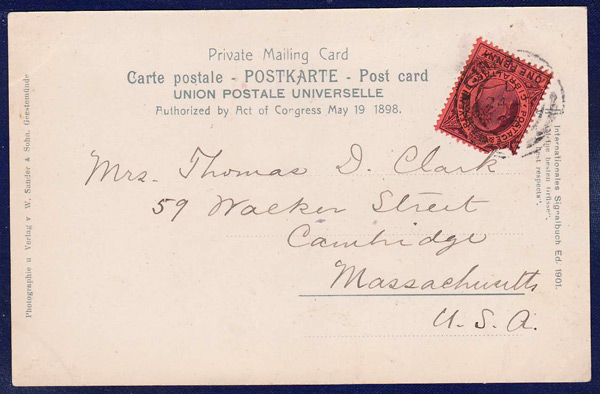 Private Mailing Card
Carte postale - POSTKARTE - Post card
UNION POSTALE UNIVERSELLE
Authorized by Act of Congress May 19 1898.
Mrs. Thomas D. Clark
59 Walker Street
Cambridge
Massachusetts
U.S.A.
Photographie u Verlag v W. Sander & Sohn, Geestemünde
Internationales Signalbuch Ed. 1901.
besten Grüsse".
best respects".
ONE PENNY
GIBRALTAR
POSTAGE &